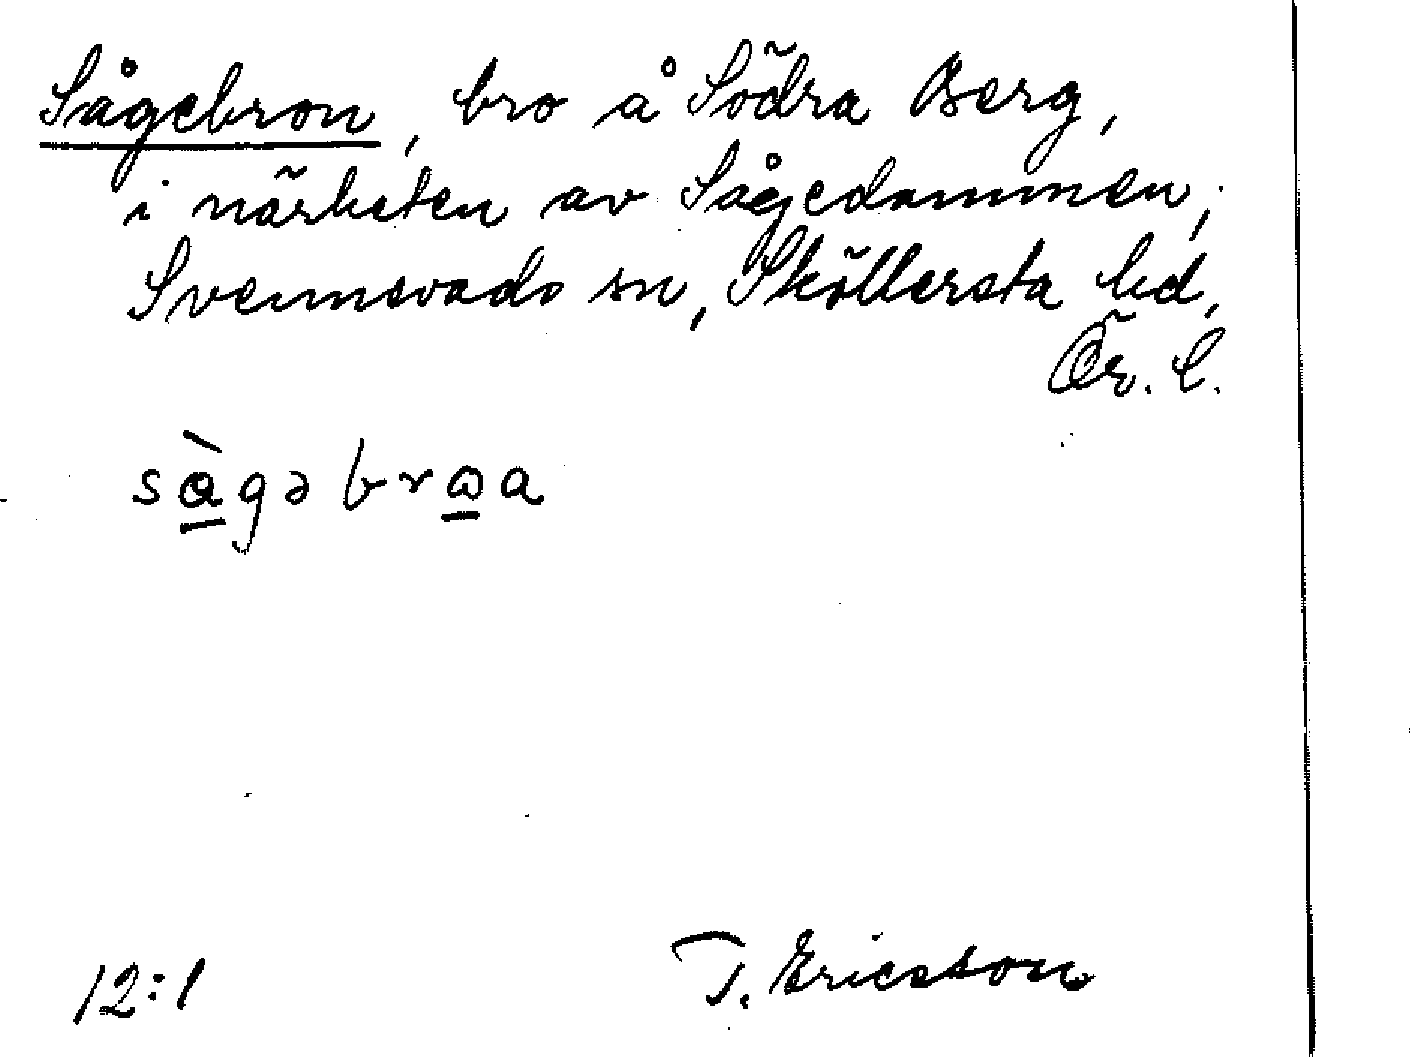 Sågebron, bro å Södra Berg,
i närheten av Sågedammen,
Svennevads sn, Sköllersta hd,
Ör. l.
sàgəbrωa
12:1 T. Ericsson